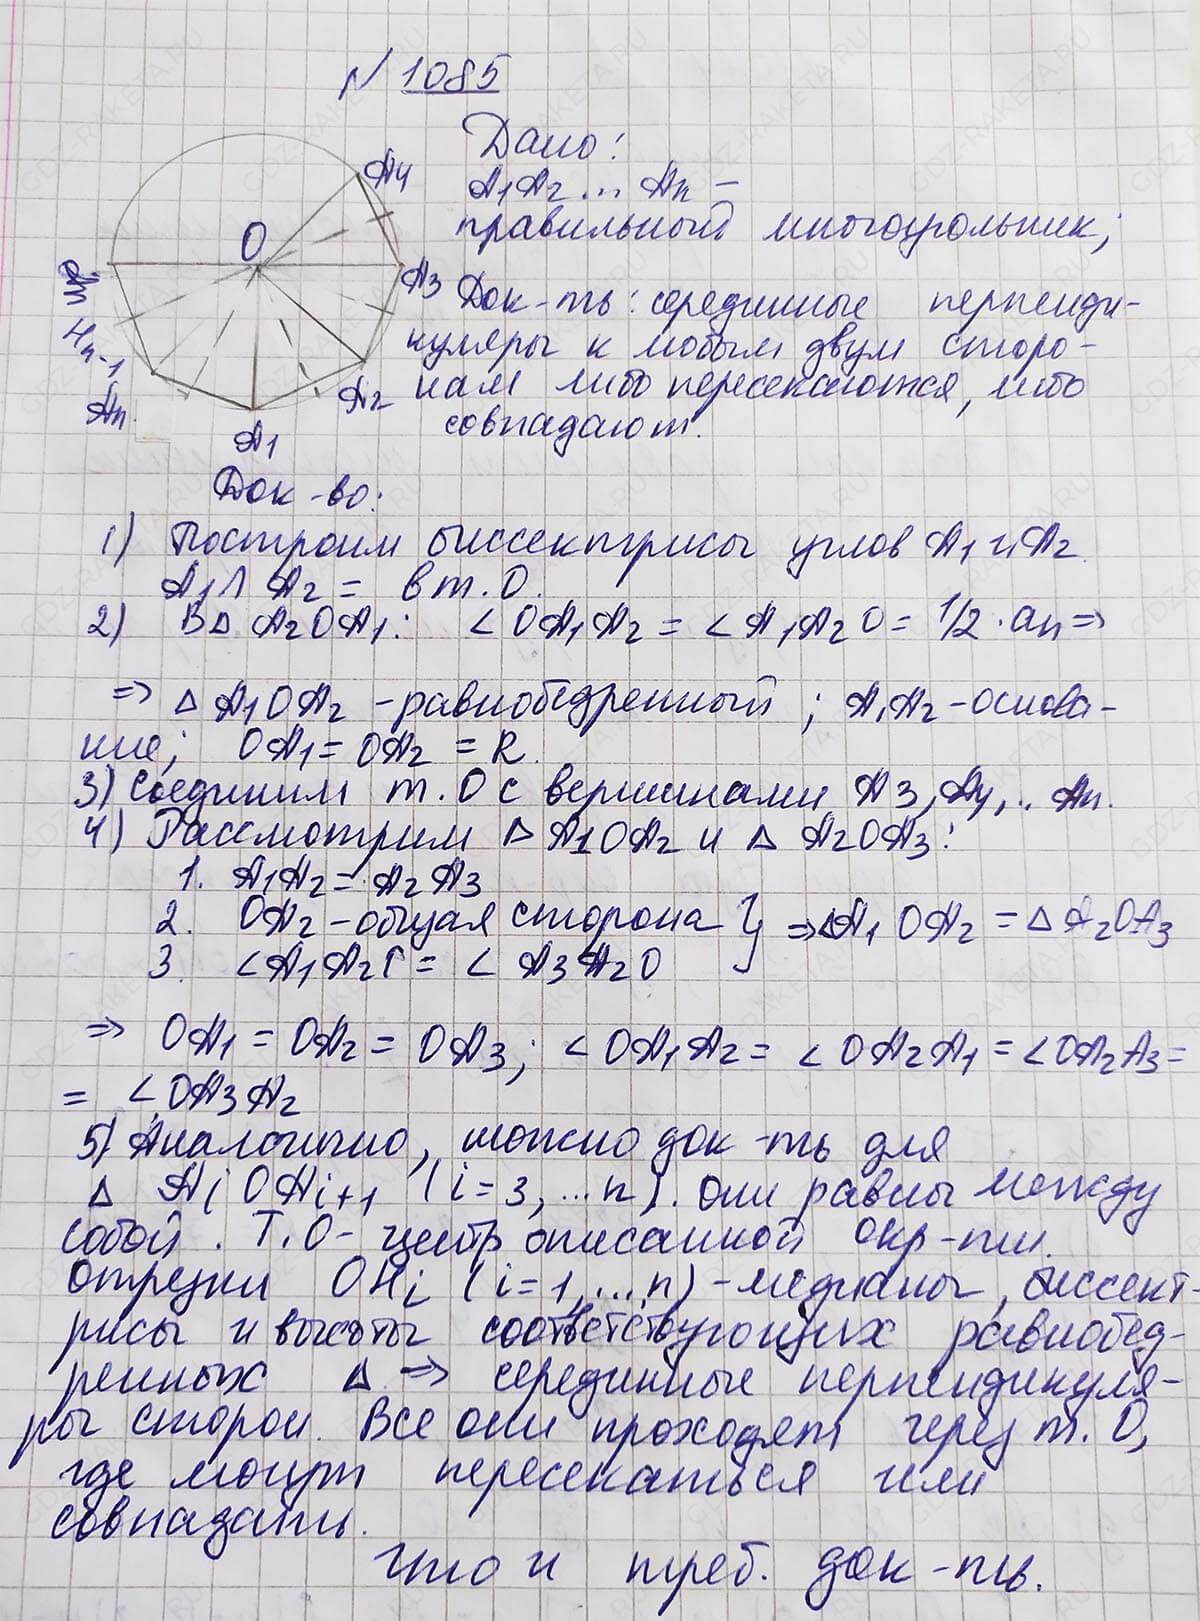 N 1085
Дано:
A1A2... An –
правильный многоугольник;
Док-ть: серединные перпенди-
куляры к любым двум сторо-
нам либо пересекаются, либо
совпадают.
O
A4
A3
A2
A1
An
Hn-1
Док-во:
1) Построим биссектрисы углов A1 и A2
A1 ∩ A2 = в т. О.
2) В Δ A2OA1: ∠OA1A2 = ∠A1A2O = 1/2 · an =>
=> Δ A1OA2 - равнобедренный; A1A2 - основа-
ние; OA1 = OA2 = R.
3) Соединим т. О с вершинами A3, A4,.. An.
4) Рассмотрим Δ A1OA2 и Δ A2OA3:
1. A1A2 = A2A3
2. OA2 - общая сторона } => ΔA1OA2 = ΔA2OA3
3. ∠A1A2O = ∠A3A2O
=> OA1 = OA2 = OA3; ∠OA1A2 = ∠OA2A1 = ∠OA2A3 =
= ∠OA3A2
5) Аналогично, можно док-ть для
Δ AiOAi+1 (i=3,...n). Они равны между
собой. Т. О - центр описанной окр-ти.
Отрезки OHi (i=1,...,n) - медианы, биссект-
рисы и высоты соответствующих равнобед-
ренных Δ => серединные перпендикуля-
ры сторон. Все они проходят через т. О,
где могут пересекаться или
совпадать.
Что и треб. док-ть.